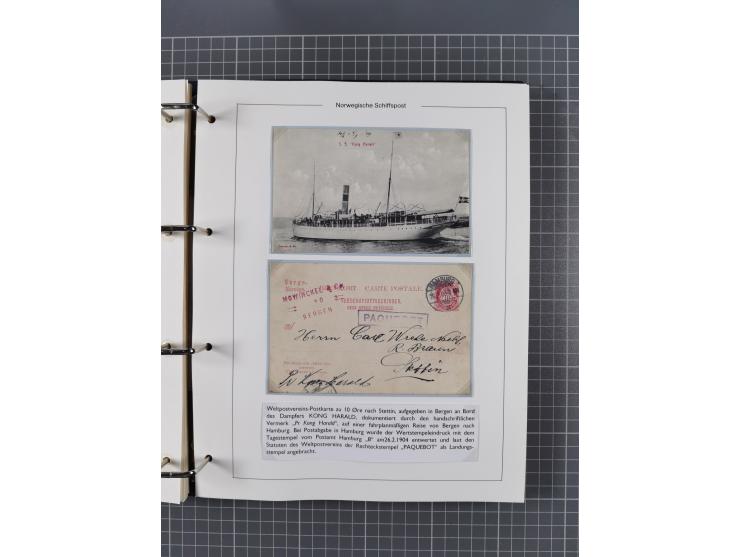 Norwegische Schiffspost
S. S. "Kong Harald"
Norge.
Norvège.
CARTE POSTALE.
VERDENSPOSTFORENINGEN
MOWINCKEL & CO
BERGEN
HAMBURG
PAQUEBOT
Herrn Carl Wrede Nachf.
Stettin
Pr Kong Harald
Weltpostvereins-Postkarte zu 10 Øre nach Stettin, aufgegeben in Bergen an Bord
des Dampfers KONG HARALD, dokumentiert durch den handschriftlichen
Vermerk „Pr Kong Harald", auf einer fahrplanmäßigen Reise von Bergen nach
Hamburg. Bei Postabgabe in Hamburg wurde der Wertstempeleindruck mit dem
Tagestempel vom Postamt Hamburg „8" am26.2.1904 entwertet und laut den
Statuten des Weltpostvereins der Rechteckstempel „PAQUEBOT" als Landungs-
stempel angebracht.